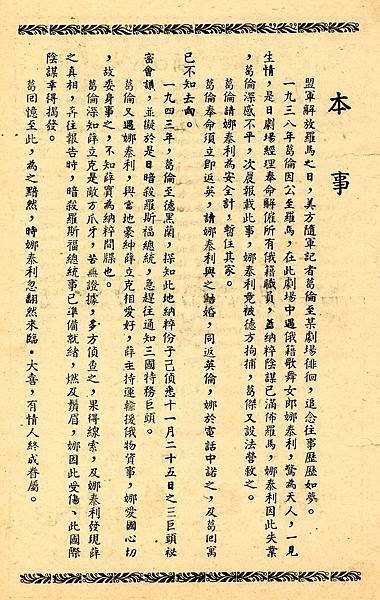 本事
盟軍解放羅馬之日，美方隨軍記者葛倫至某劇場徘徊，追念往事歷歷如夢。
一九三八年葛倫因公至羅馬，在此劇場中遇俄籍歌舞女郎娜泰利，驚為天人，一見
生情，是日劇場經理奉命解僱所有俄籍職員，蓋納粹陰謀已滿佈羅馬，娜泰利因此失業
葛倫深感不平，次晨報載此事，娜泰利竟被德方拘捕，葛傑又設法營救之。
葛倫請娜泰利為安全計，暫住其家。
葛倫奉命須立即返英，請娜泰利與之結婚，同返英倫，娜於電話中諾之，及葛回寓
已不知去向。
一九四三年，葛倫至德黑蘭，探知此地納粹份子已偵悉十一月二十五日之三巨頭祕
密會議，並擬於是日暗殺羅斯福總統，急趕往通知三國特務巨頭。
葛倫又遇娜泰利，與當地豪紳薛立克相愛好，薛主持運輸援俄物資事，娜愛國心切
，故委身事之，不知薛實為納粹間牒也。
葛倫深知薛立克是敵方爪牙，苦無證據，多方偵查之，果得線索，及娜泰利發現薛
之真相，奔往報告時，暗殺羅斯福總統事已準備就緒，燃及鬚眉，娜因此受傷、此國際
陰謀幸得揭發。
葛回憶至此，為之黯然，時娜泰利忽翩然來臨。大喜，有情人終成眷屬。